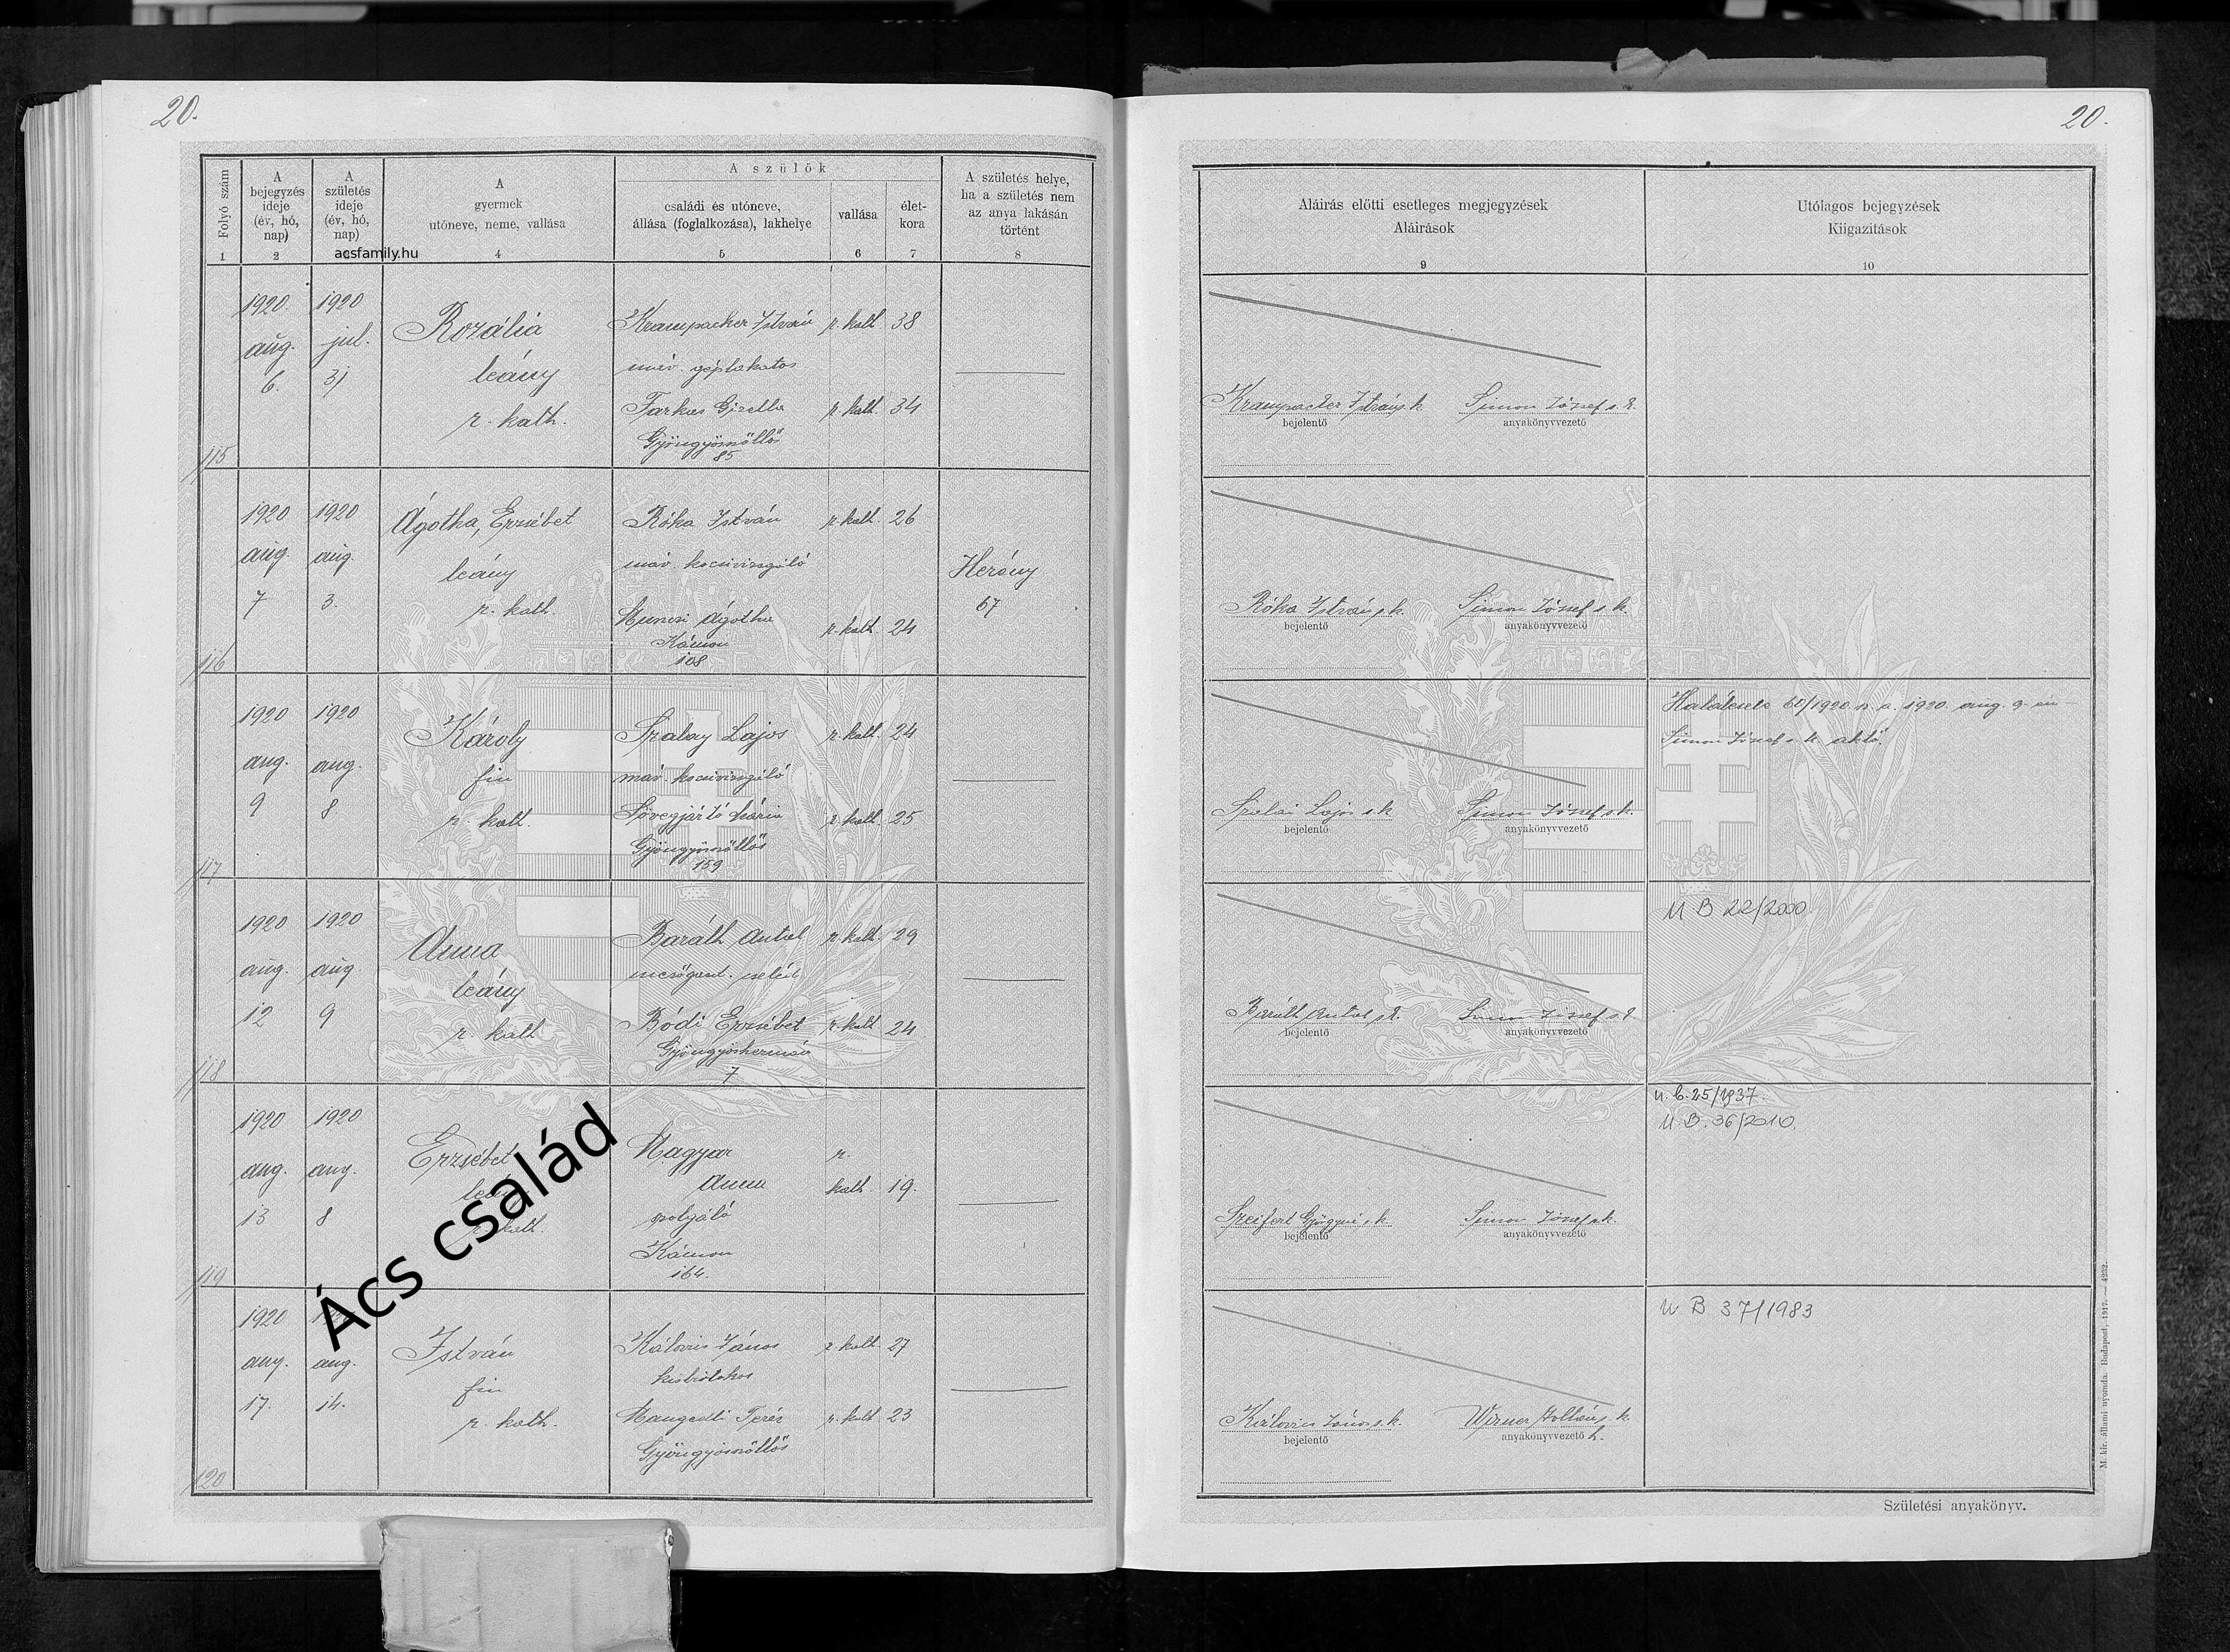 20.
20.
Folyó szám
A bejegyzés ideje (év, hó, nap)
A születés ideje (év, hó, nap)
A gyermek utóneve, neme, vallása
A szülők
családi és utóneve, állása (foglalkozása), lakhelye
vallása
életkora
A születés helye, ha a születés nem az anya lakásán történt
acsfamily.hu
1 2 4 5 6 7 8
Aláírás előtti esetleges megjegyzések
Aláírások
9
Utólagos bejegyzések
Kiigazítások
10
115
1920. aug. 6.
1920 jul. 31
Rozália
leány
r. kath.
Krampacker István r. kath. 38
máv. géplakatos
Farkas Gizella r. kath. 34
Gyöngyösszőllős
85
Krampacker István s. k.
bejelentő
Simon József s. k.
anyakönyvvezető
116
1920 aug. 7
1920 aug. 3.
Ágotha, Erzsébet
leány
r. kath.
Róka István r. kath. 26
máv. kocsivizsgáló
Ágotha r. kath. 24
Kámon
108
Herény
67
Róka István s. k.
bejelentő
Simon József s. k.
anyakönyvvezető
117
1920 aug. 9
1920 aug. 8
Károly
fiu
r. kath.
Szalay Lajos r. kath. 24
máv. kocsivizsgáló
Süvegjártó Mária r. kath. 25
Gyöngyösszőllős
159
Szalai Lajos s. k.
bejelentő
Simon József s. k.
anyakönyvvezető
Halálesete 60/1920 1920. aug. 9-én
Simon József s. k.
118
1920 aug. 12
1920 aug. 9
Anna
leány
r. kath
Baráth Antal r. kath. 29
Bódi Erzsébet r. kath 24
Gyöngyöshermán
7
Baráth Antal s. k.
bejelentő
Simon József s. k.
anyakönyvvezető
U B 22/2000
119
1920 aug. 13
1920 aug. 8
Erzsébet
leány
kath.
Magyar Anna r. kath. 19.
Kámon
164.
Szeifert Györgyné s. k.
bejelentő
Simon József s. k.
anyakönyvvezető
U. b. 25/1937.
U B. 36/2010.
120
1920 aug. 17.
aug. 14.
István
fiu
r. kath.
Kálovics János r. kath 27
kisbirtokos
Teréz r. kath. 23
Gyöngyösszőllős
Kálovics János s. k.
bejelentő
Wirner Zoltán s. k.
anyakönyvvezető h.
U B 37/1983
Ács család
M. kir. állami nyomda. Budapest, 1917. — 4232.
Születési anyakönyv.